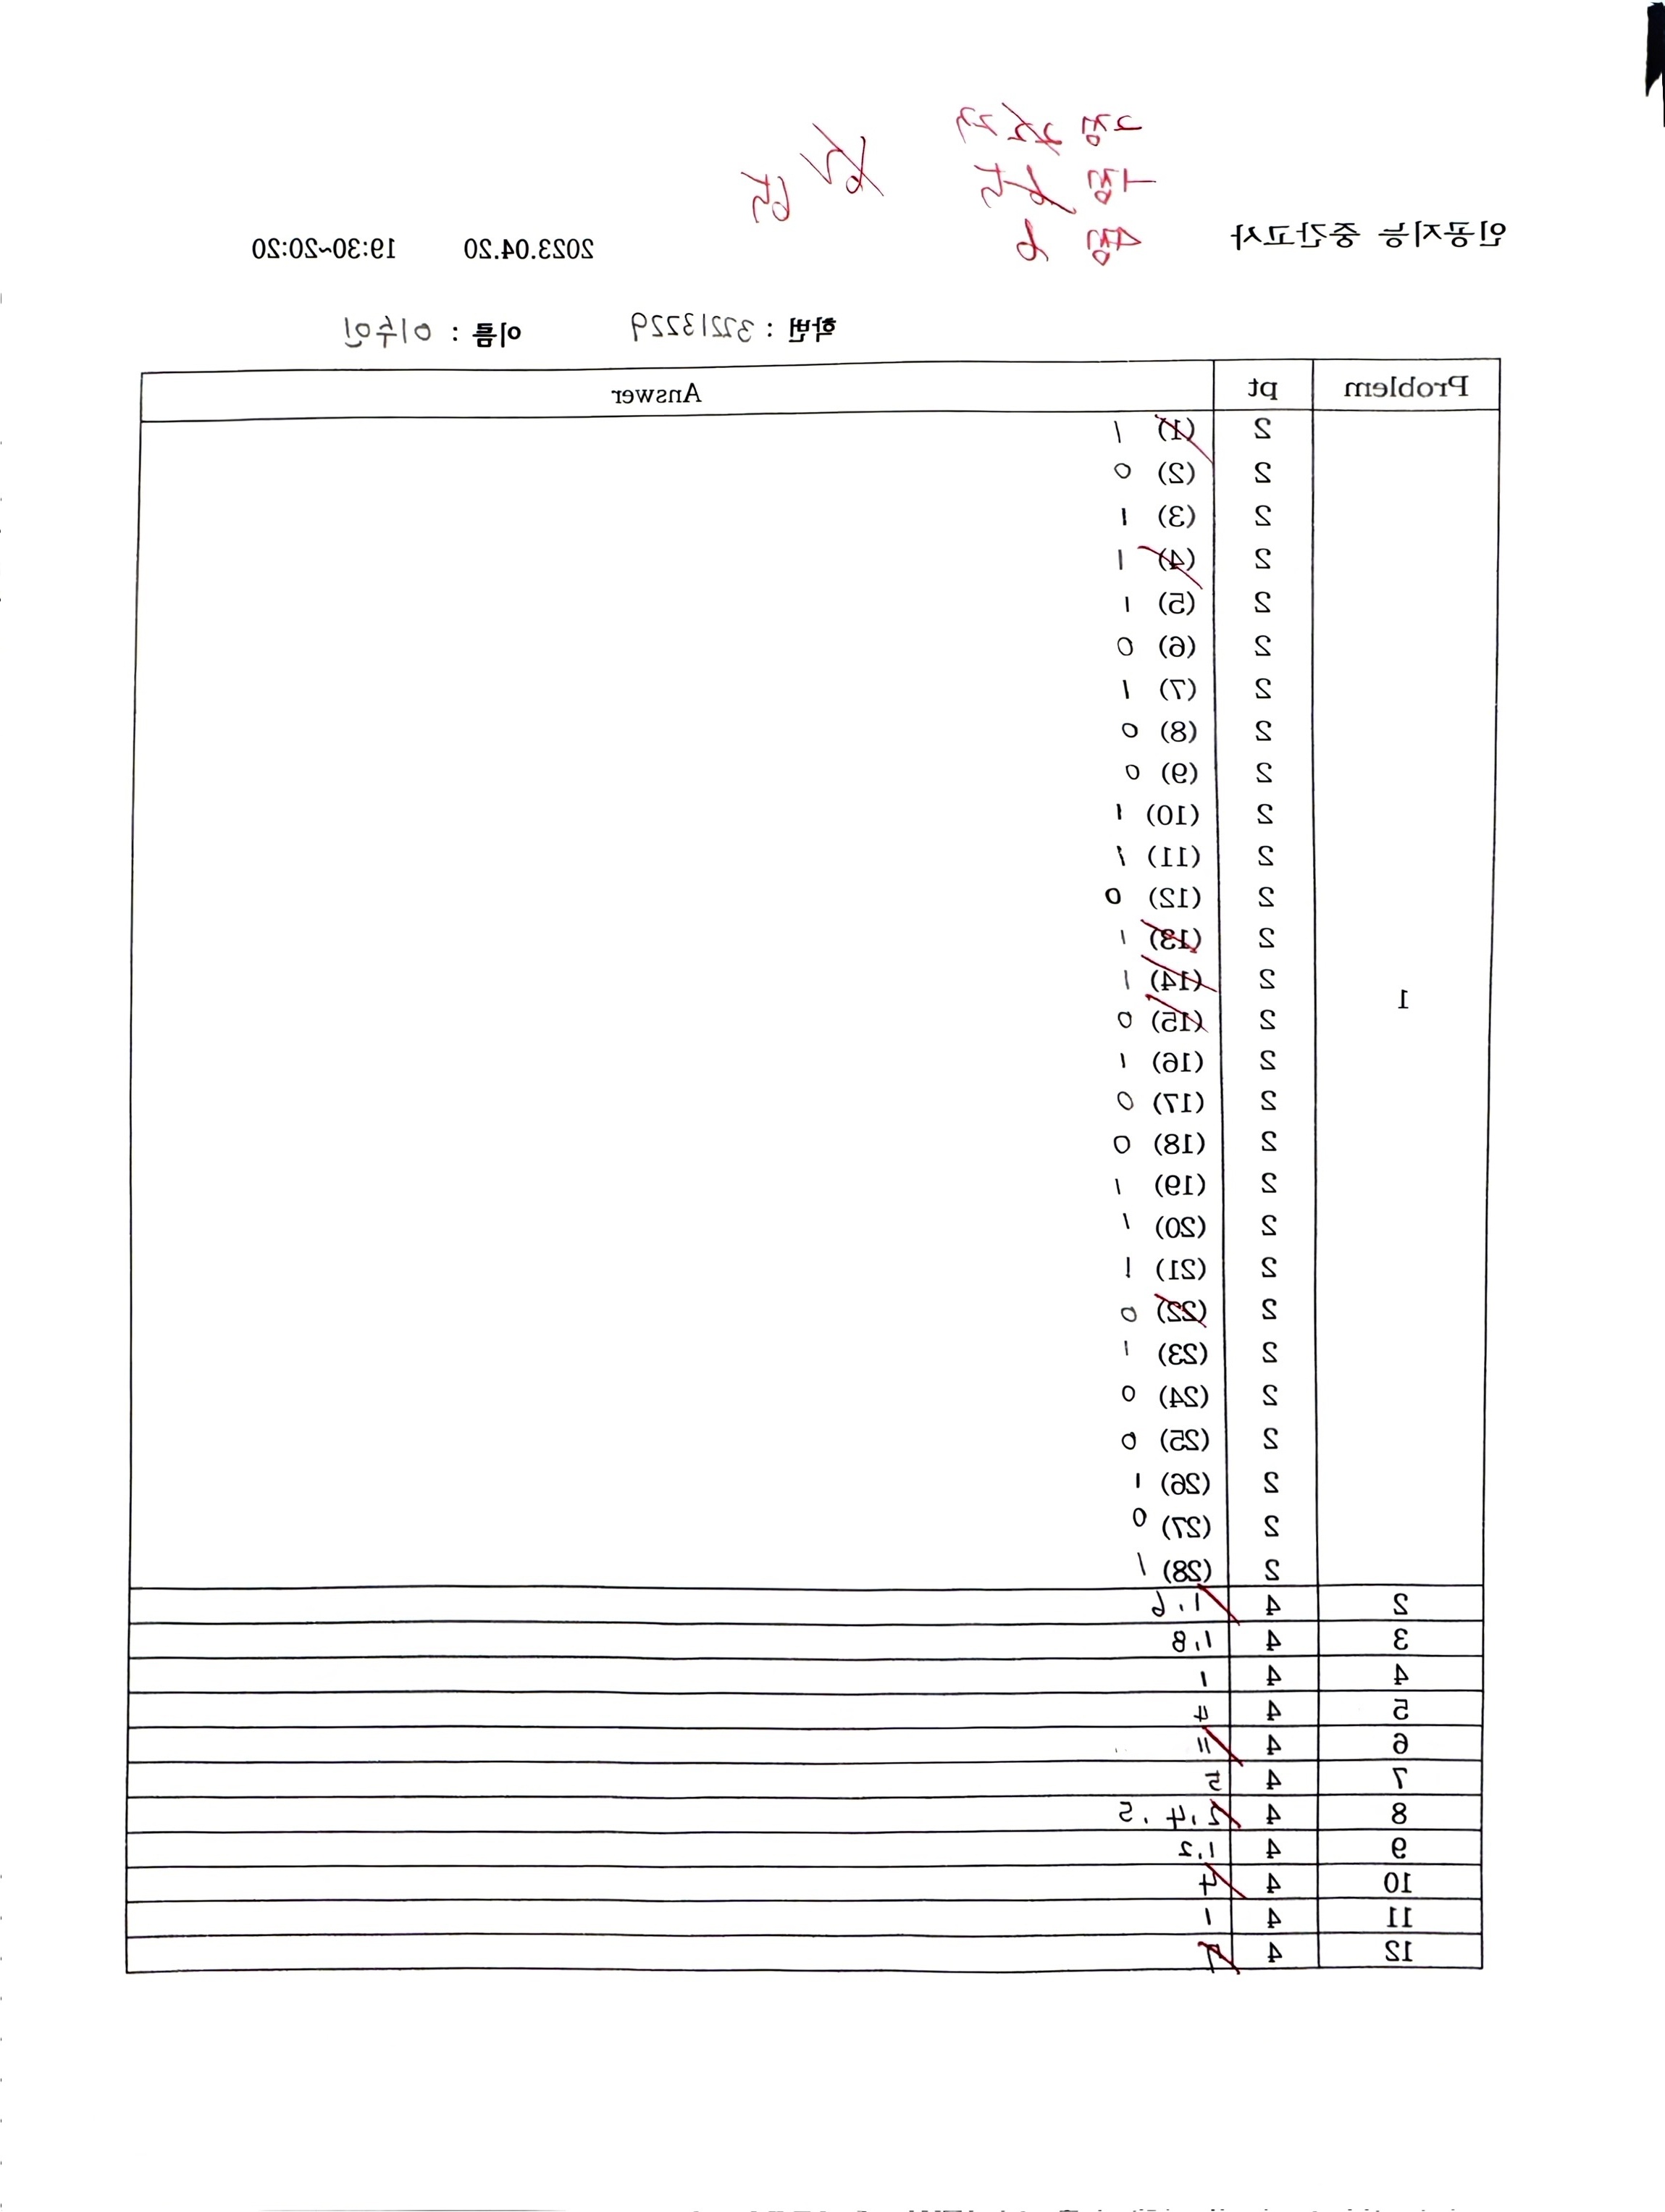 4점 6
인공지능 중간고사 2023.04.20 19:30~20:20
학번 : 32213229 이름 : 이수인
Problem pt Answer
1
2 (1) 1
2 (2) 0
2 (3) 1
2 (4) 1
2 (5) 1
2 (6) 0
2 (7) 1
2 (8) 0
2 (9) 0
2 (10) 1
2 (11) 1
2 (12) 0
2 (13) 1
2 (14) 1
2 (15) 0
2 (16) 1
2 (17) 0
2 (18) 0
2 (19) 1
2 (20) 1
2 (21) 1
2 (22) 0
2 (23) 1
2 (24) 0
2 (25) 0
2 (26) 1
2 (27) 0
2 (28) 1
2 4 1, 6
3 4 1, 8
4 4 1
5 4 4
6 4 11
7 4 5
8 4 2, 4, 5
9 4 1, 2
10 4 4
11 4 1
12 4